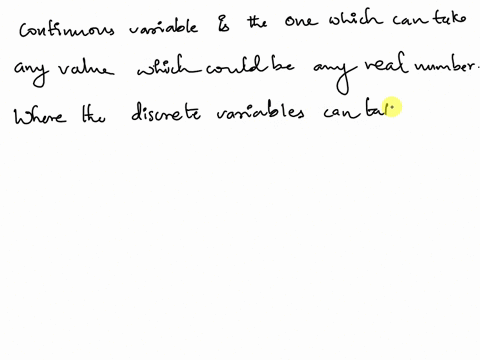 Continuous variable is the one which can take
any value which could be any real number.
Where the discrete variables can tak